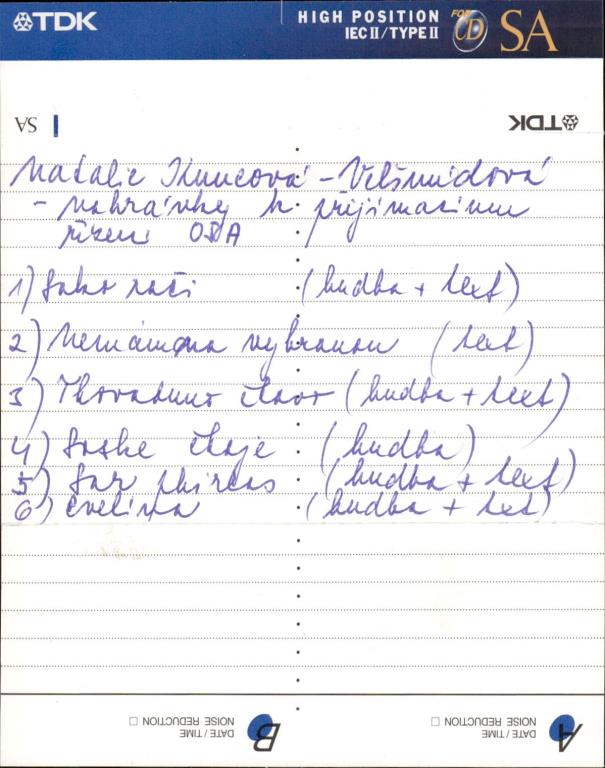 TDK
HIGH POSITION
IEC II / TYPE II
FOR CD
SA
SA
TDK
Natalie Kuncová - Velšmidová
- nahrávky k prijímacímu
řízení OSA
1) Sako rači (hudba + text)
2) Nemám na vybranou (text)
3) (hudba + text)
4) Soske (hudba)
5) Sar phirlas (hudba + text)
6) Evelina (hudba + text)
B DATE / TIME
NOISE REDUCTION □
A DATE / TIME
NOISE REDUCTION □